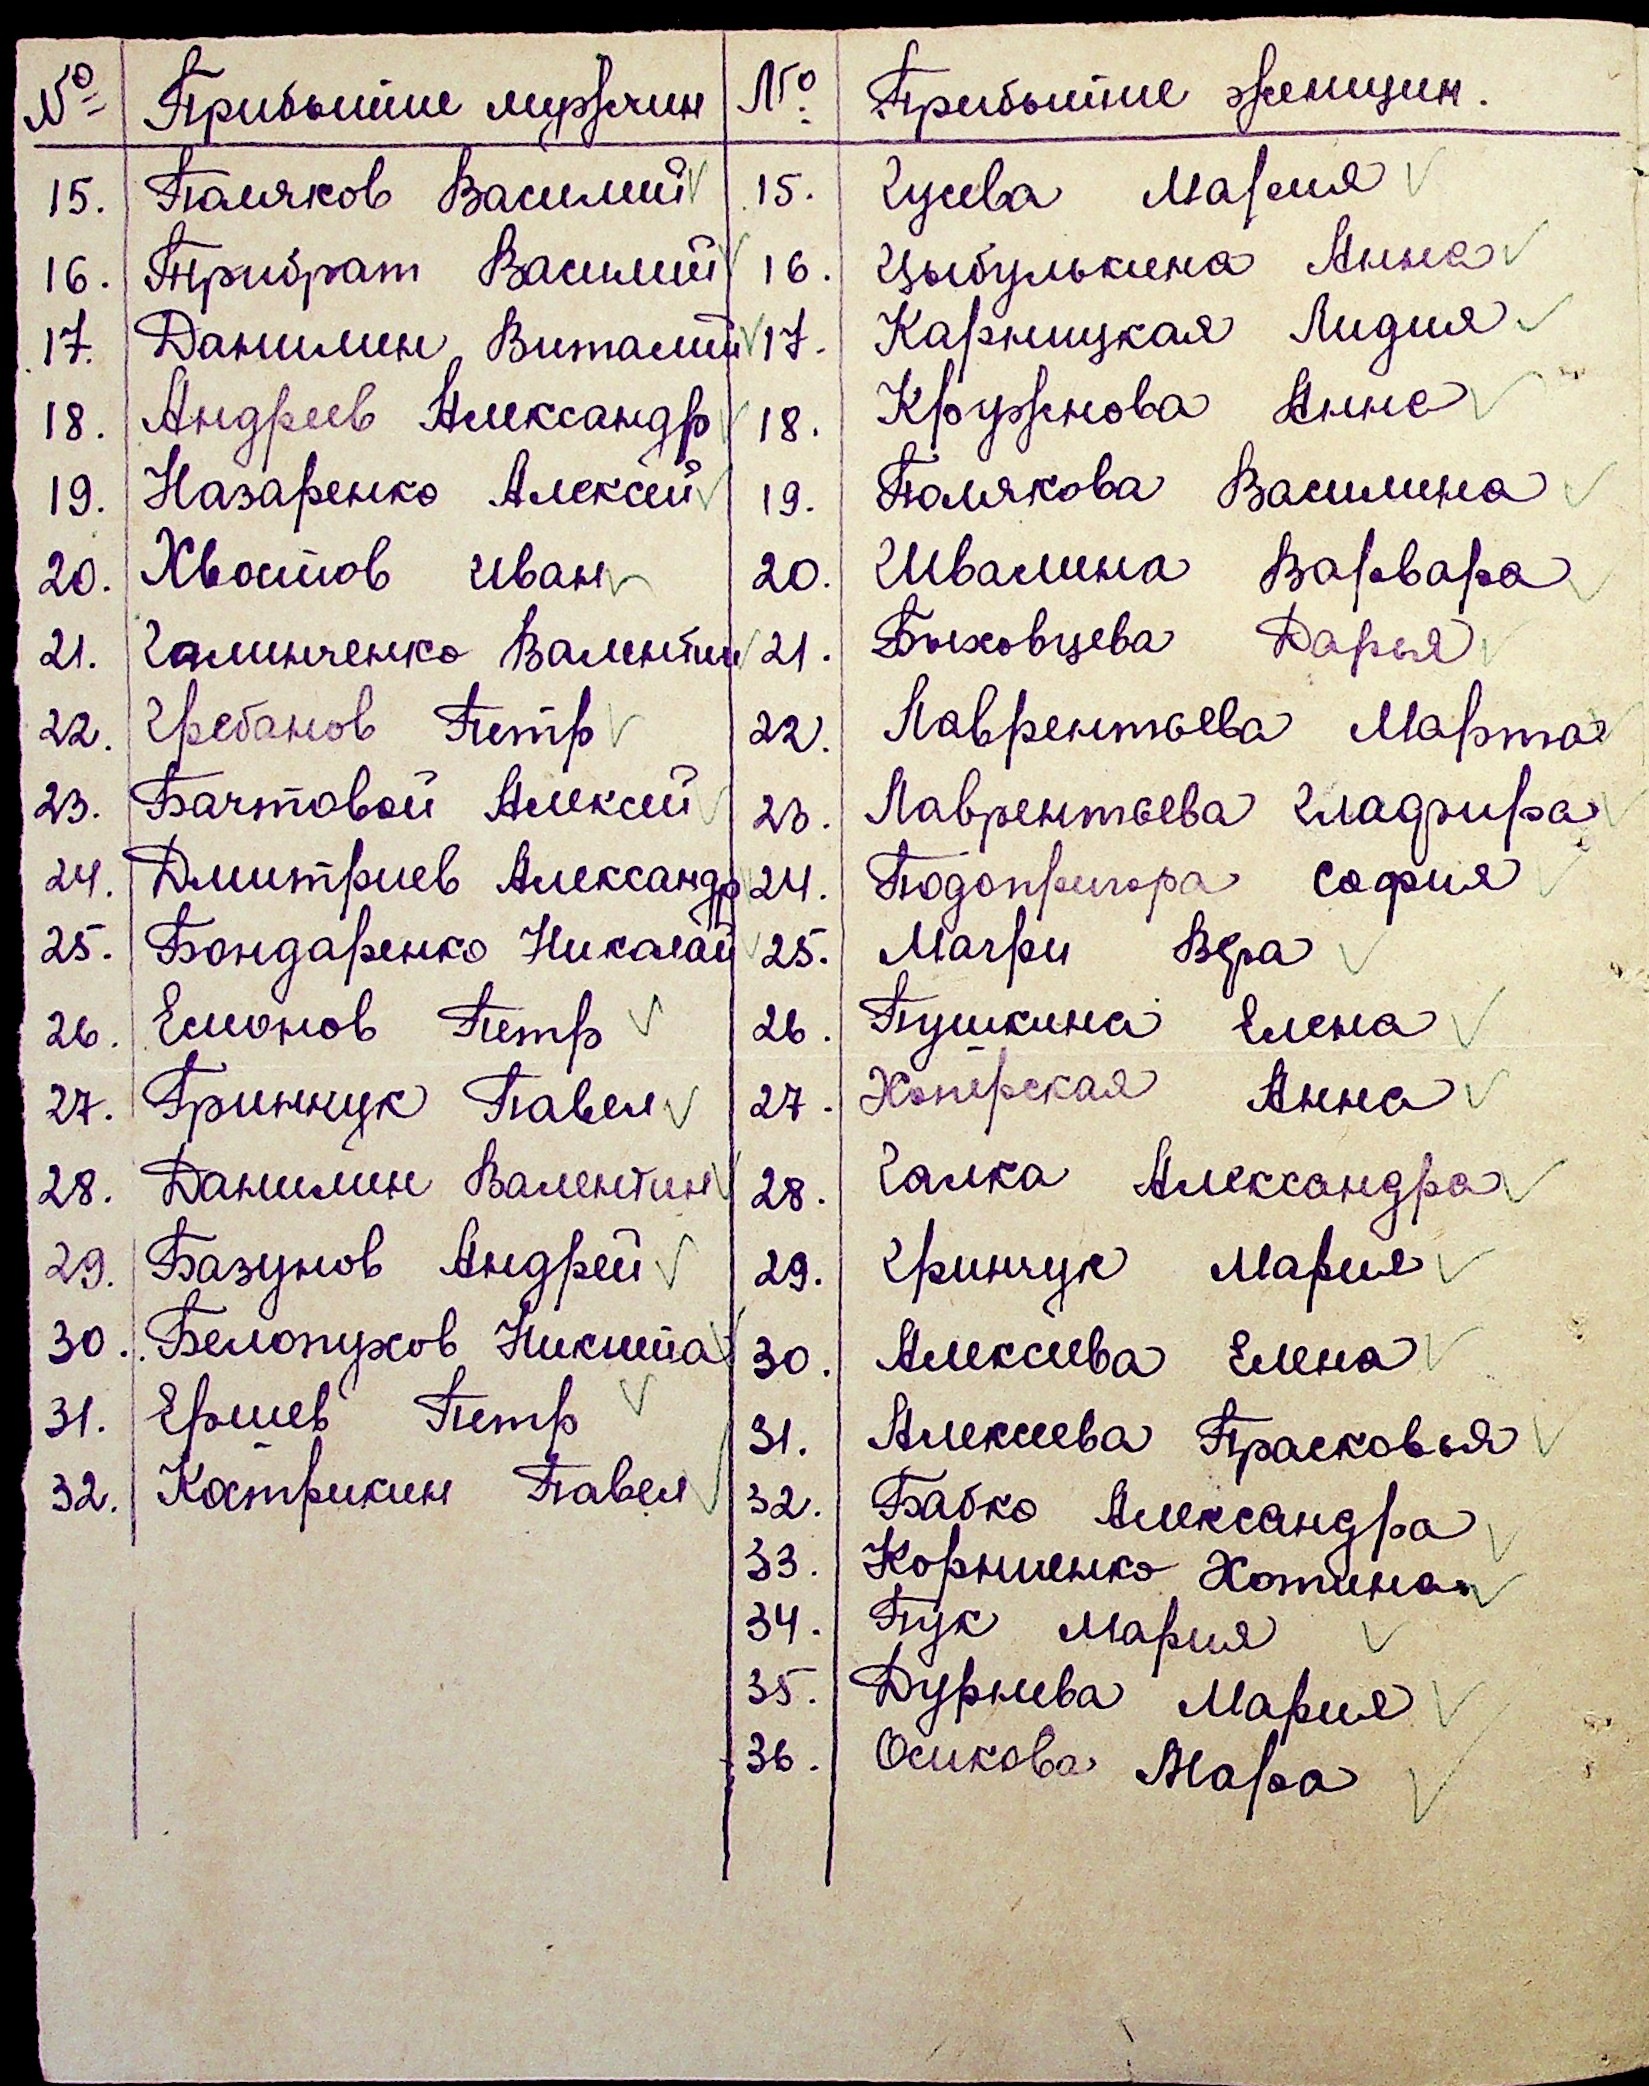 № Прибытие мужчин № Прибытие женщин.
15. Поляков Василий 15. Гусева Мария
16. Прибрат Василий 16. Цыбулькина Анна
17. Данилин Виталий 17. Карницкая Лидия
18. Андреев Александр 18. Кружнова Анна
19. Назаренко Алексей 19. Полякова Василина
20. Хвостов Иван 20. Ивалина Варвара
21. Галинченко Валентин 21. Быховцева Дарья
22. Гребанов Петр 22. Лаврентьева Марта
23. Бачтовой Алексей 23. Лаврентьева Гладфира
24. Дмитриев Александр 24. Подопригора София
25. Бондаренко Николай 25. Магри Вера
26. Емонов Петр 26. Пушкина Елена
27. Гринчук Павел 27. Хопёрская Анна
28. Данилин Валентин 28. Галка Александра
29. Базунов Андрей 29. Гринчук Мария
30. Белопухов Никита 30. Алексеева Елена
31. Ершев Петр 31. Алексеева Прасковья
32. Кострикин Павел 32. Бабко Александра
33. Корниенко Хотина
34. Пук Мария
35. Дурнева Мария
36. Осикова Мара